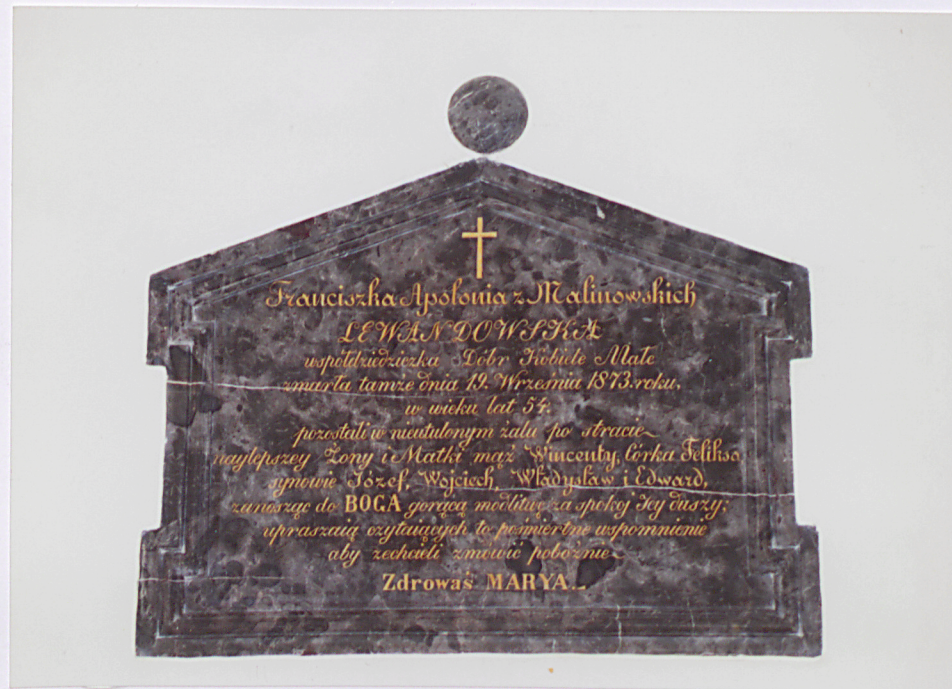 Franciszka Apolonia z Malinowskich
LEWANDOWSKA
współdziedziczka Dóbr Kobiele Małe
zmarła tamże dnia 19. Września 1873. roku,
w wieku lat 54.
pozostali w nieutulonym żalu po stracie
naylepszey Żony i Matki mąż Wincenty, Córka Feliksa
synowie Józef, Wojciech, Władysław i Edward,
zanosząc do BOGA gorącą modlitwę za spokój Jey duszy;
upraszaią czytaiących to pośmiertne wspomnienie
aby zechcieli zmówić pobożnie
Zdrowaś MARYA...